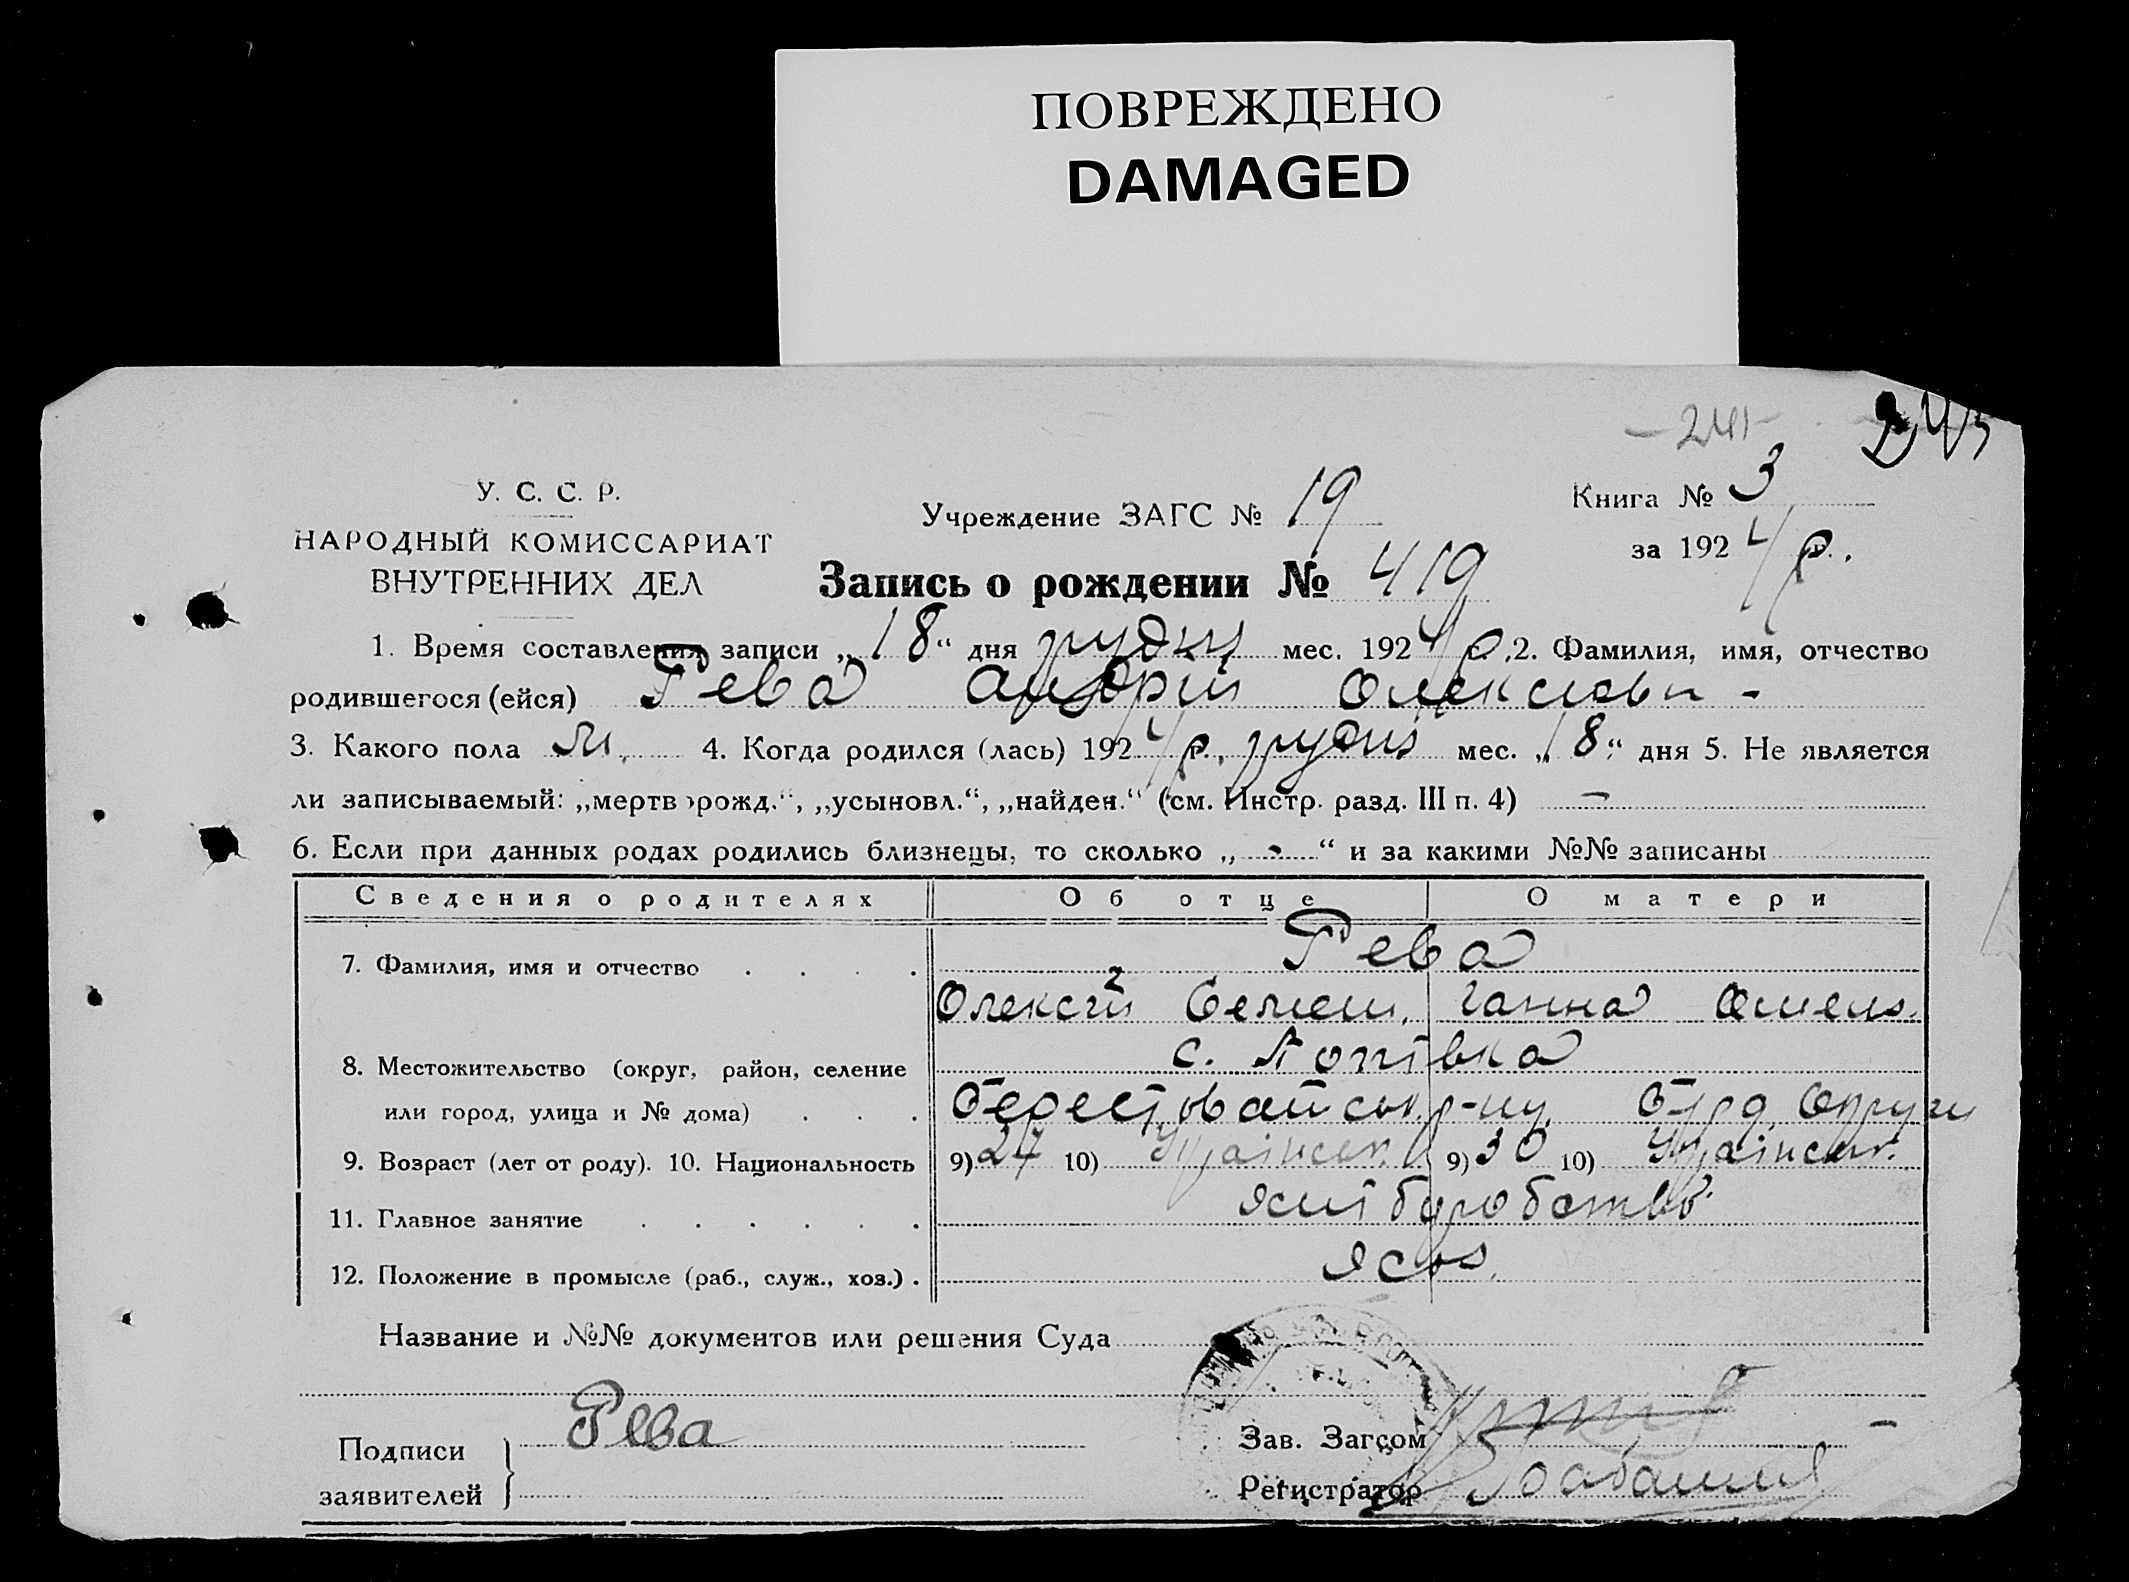 ПОВРЕЖДЕНО
DAMAGED
- 241 -
У. С. С. Р.
НАРОДНЫЙ КОМИССАРИАТ
ВНУТРЕННИХ ДЕЛ
Учреждение ЗАГС № 19
Книга № 3
за 1924 р.
Запись о рождении № 419
1. Время составления записи „18“ дня грудня мес. 1924 р. 2. Фамилия, имя, отчество
родившегося (ейся) Рева Андрій Олексіев -
3. Какого пола М. 4. Когда родился (лась) 1924 р. грудня мес. „18“ дня 5. Не является
ли записываемый: „мертворожд.“, „усыновл.“, „найден.“ (см. Инстр. разд. III п. 4) -
6. Если при данных родах родились близнецы, то сколько „-“ и за какими №№ записаны
Сведения о родителях Об отце О матери
7. Фамилия, имя и отчество Рева
Олексій Семен. Ганна Омель.
с. Попівка
8. Местожительство (округ, район, селение
или город, улица и № дома) р-ну Округи
9. Возраст (лет от роду). 10. Национальность 9) 27 10) Українськ. 9) 30 10) Українськ.
11. Главное занятие хліборобство
12. Положение в промысле (раб., служ., хоз.)
Название и №№ документов или решения Суда
Подписи
заявителей
Рева
Зав. Загсом
Регистратор